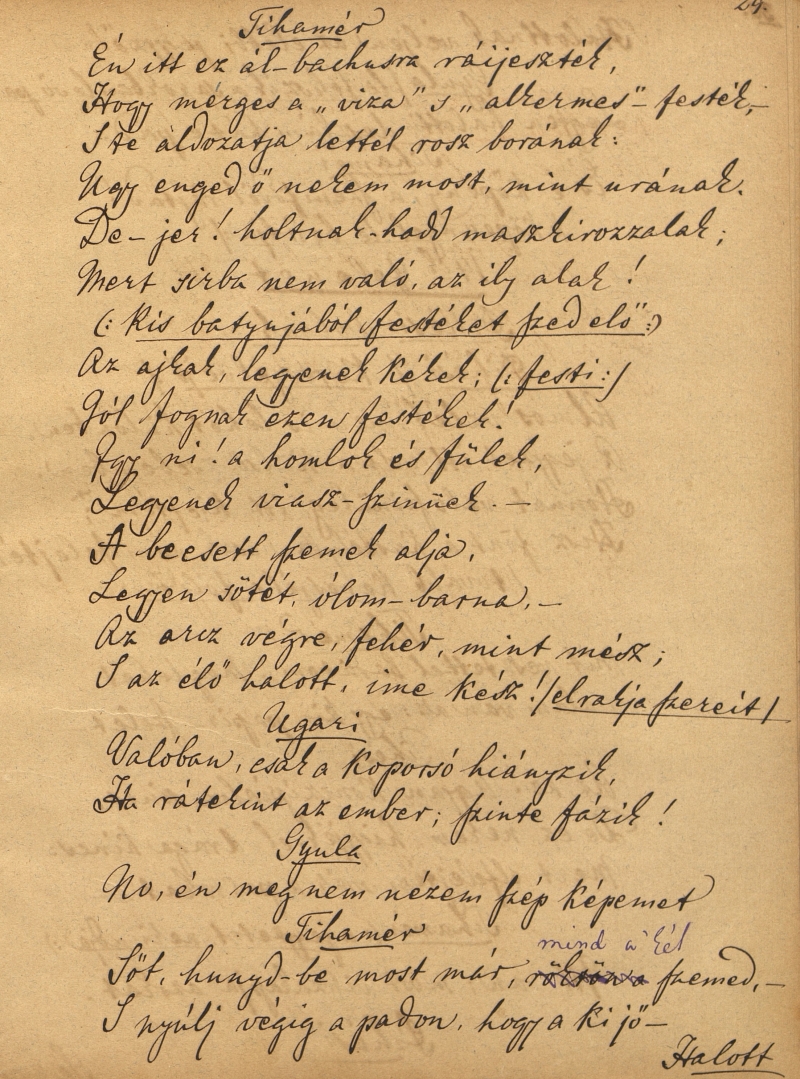 24.
Tihamér
Én itt ez ál-bachusra ráijeszték,
Hogy mérges a „viza” s „alkermes”-festék,-
S te áldozatja lettél rosz borának:
Ugy enged ő nekem most, mint urának.
De-jer! holtnak-hadd maszkirozzalak;
Mert sirba nem való, az ily alak!
(: Kis batyujából festéket szed elő :)
Az ajkak, legyenek kékek; (: festi :)
Jól fognak ezen festékek!
Igy ni! a homlok és fülek,
Legyenek viasz-szinüek.-
A beesett szemek alja,
Legyen sötét, ólom-barna,-
Az arcz végre, fehér, mint mész;
S az élő halott, ime kész! /elrakja szereit/
Ugari
Valóban, csak a koporsó hiányzik,
Ha rátekint az ember; szinte fázik!
Gyula
No, én meg nem nézem szép képemet
Tihamér
mind a két
Sőt, hunyd-be most már, szemed,-
S nyúlj végig a padon, hogy a ki jő-
Halott